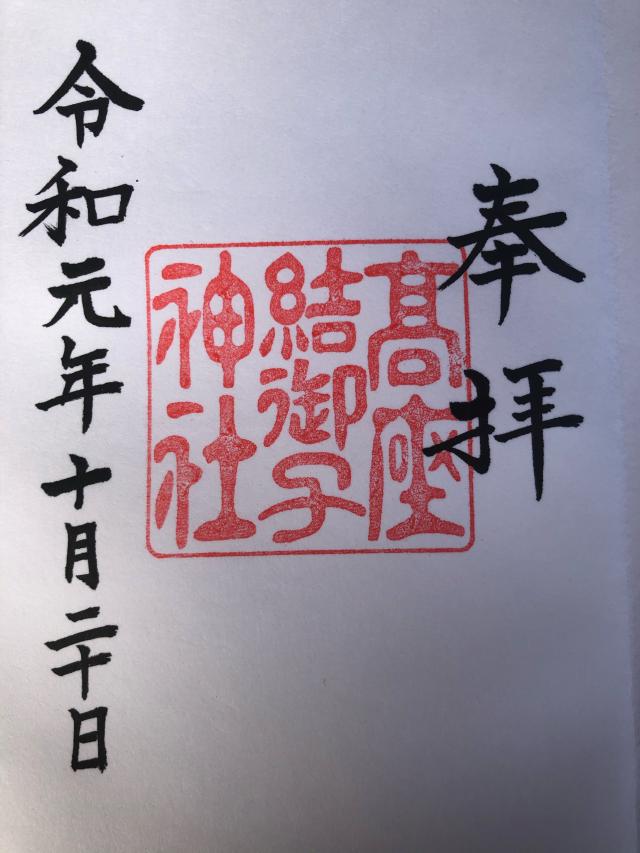 奉拝
高座
結御子
神社
令和元年十月二十日